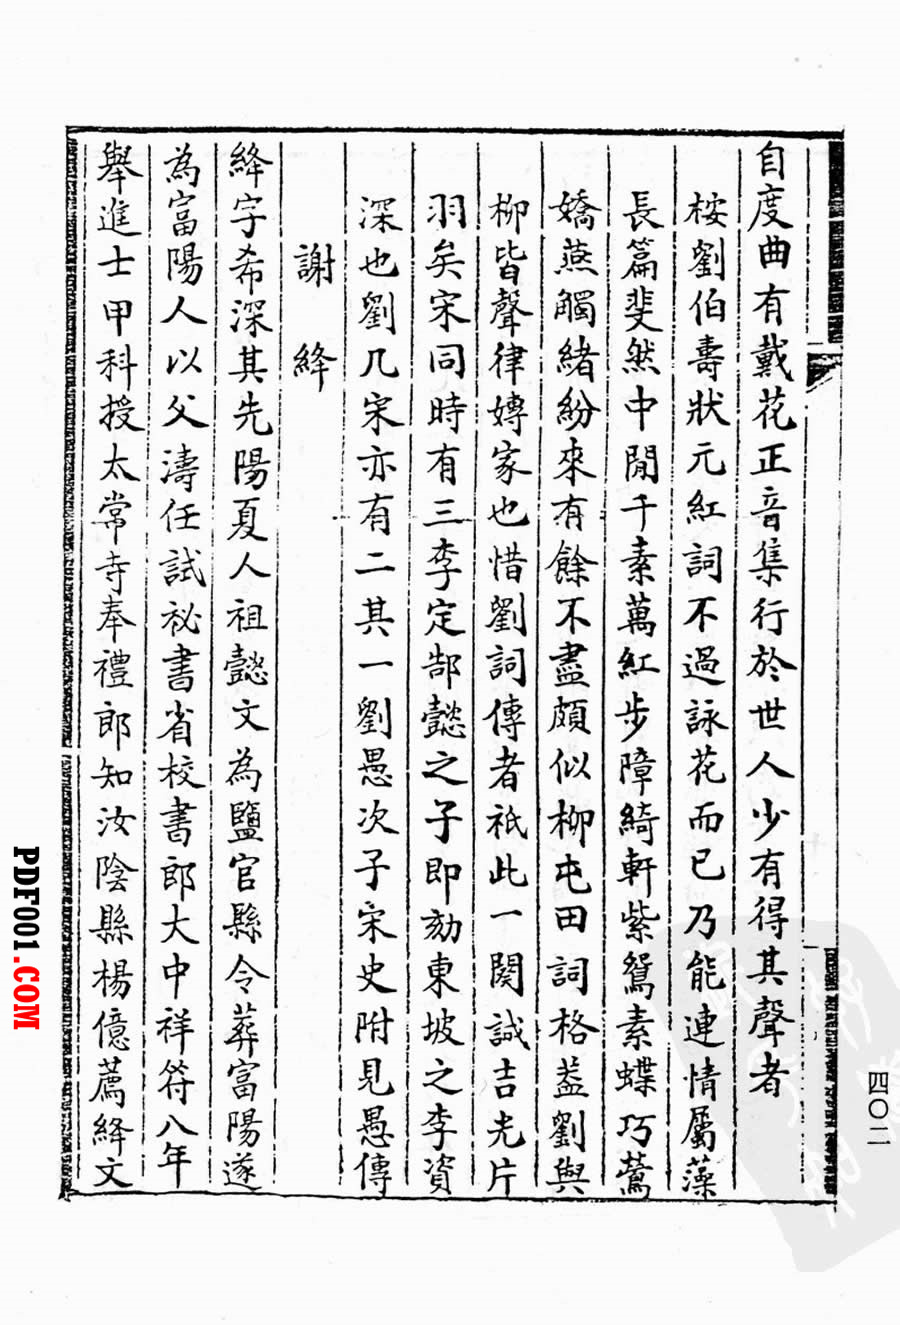 自度曲有戴花正音集行於世人少有得其聲者
桉劉伯壽狀元紅詞不過詠花而已乃能連情屬藻
長篇斐然中閒千素萬紅步障綺軒紫鴛素蝶巧鶯
嬌燕觸緒紛來有餘不盡頗似柳屯田詞格葢劉與
柳皆聲律嫥家也惜劉詞傳者祇此一闋誠吉光片
羽矣宋同時有三李定郜懿之子即劾東坡之李資
深也劉几宋亦有二其一劉愚次子宋史附見愚傳
謝絳
絳字希深其先陽夏人祖懿文為鹽官縣令葬富陽遂
為富陽人以父濤任試祕書省校書郎大中祥符八年
舉進士甲科授太常寺奉禮郎知汝陰縣楊億薦絳文
四〇二
PDF001.COM